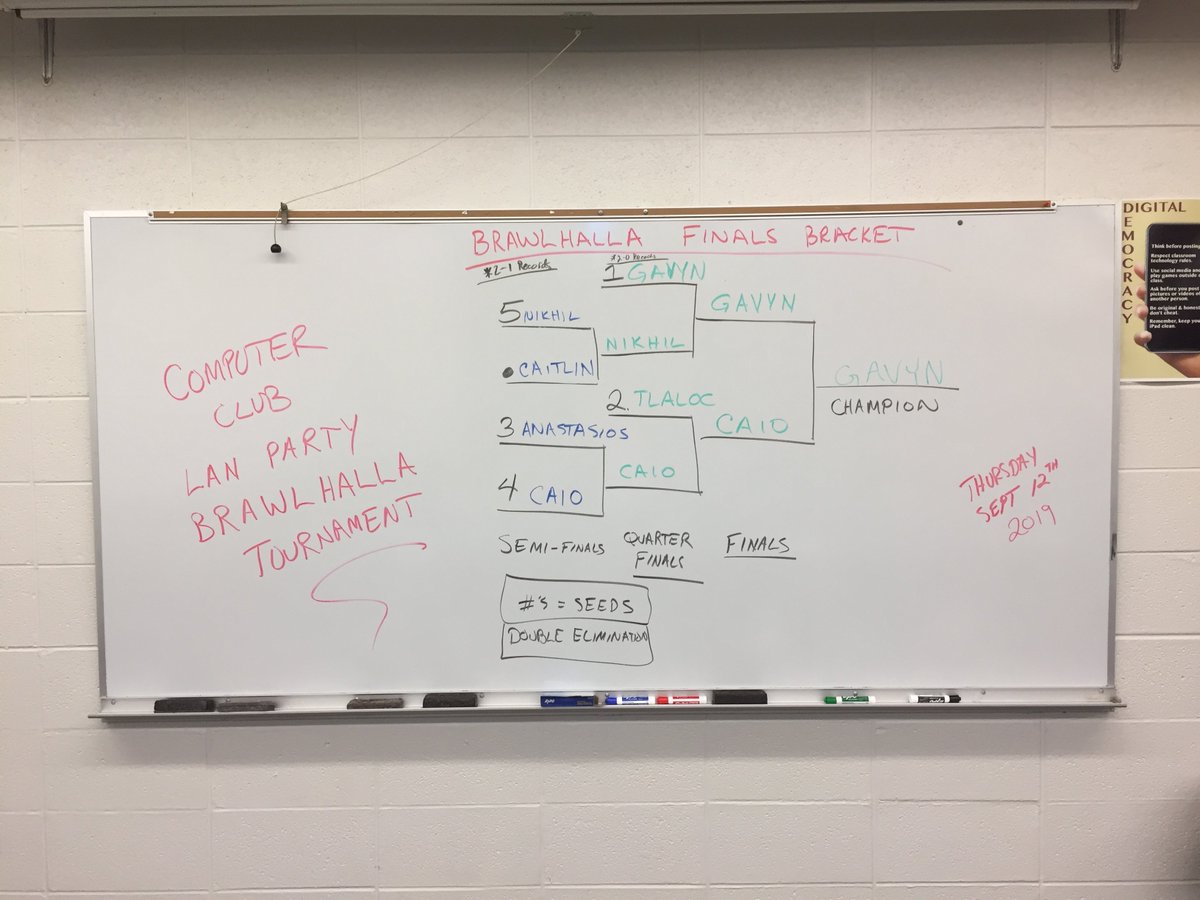 BRAWLHALLA FINALS BRACKET
*2-1 Records
*2-0 Records
1 GAVYN
5 NIKHIL
GAVYN
NIKHIL
• CAITLIN
GAVYN
CHAMPION
2. TLALOC
3 ANASTASIOS
CAIO
CAIO
4 CAIO
SEMI-FINALS
QUARTER
FINALS
FINALS
#'S = SEEDS
DOUBLE ELIMINATION
COMPUTER
CLUB
LAN PARTY
BRAWLHALLA
TOURNAMENT
THURSDAY
SEPT 12TH
2019
DIGITAL
DEMOCRACY
Think before posting
Respect classroom
technology rules.
Use social media and
play games outside
class.
Ask before you post
pictures or videos of
another person.
Be original & honest
don't cheat.
Remember, keep your
iPad clean.